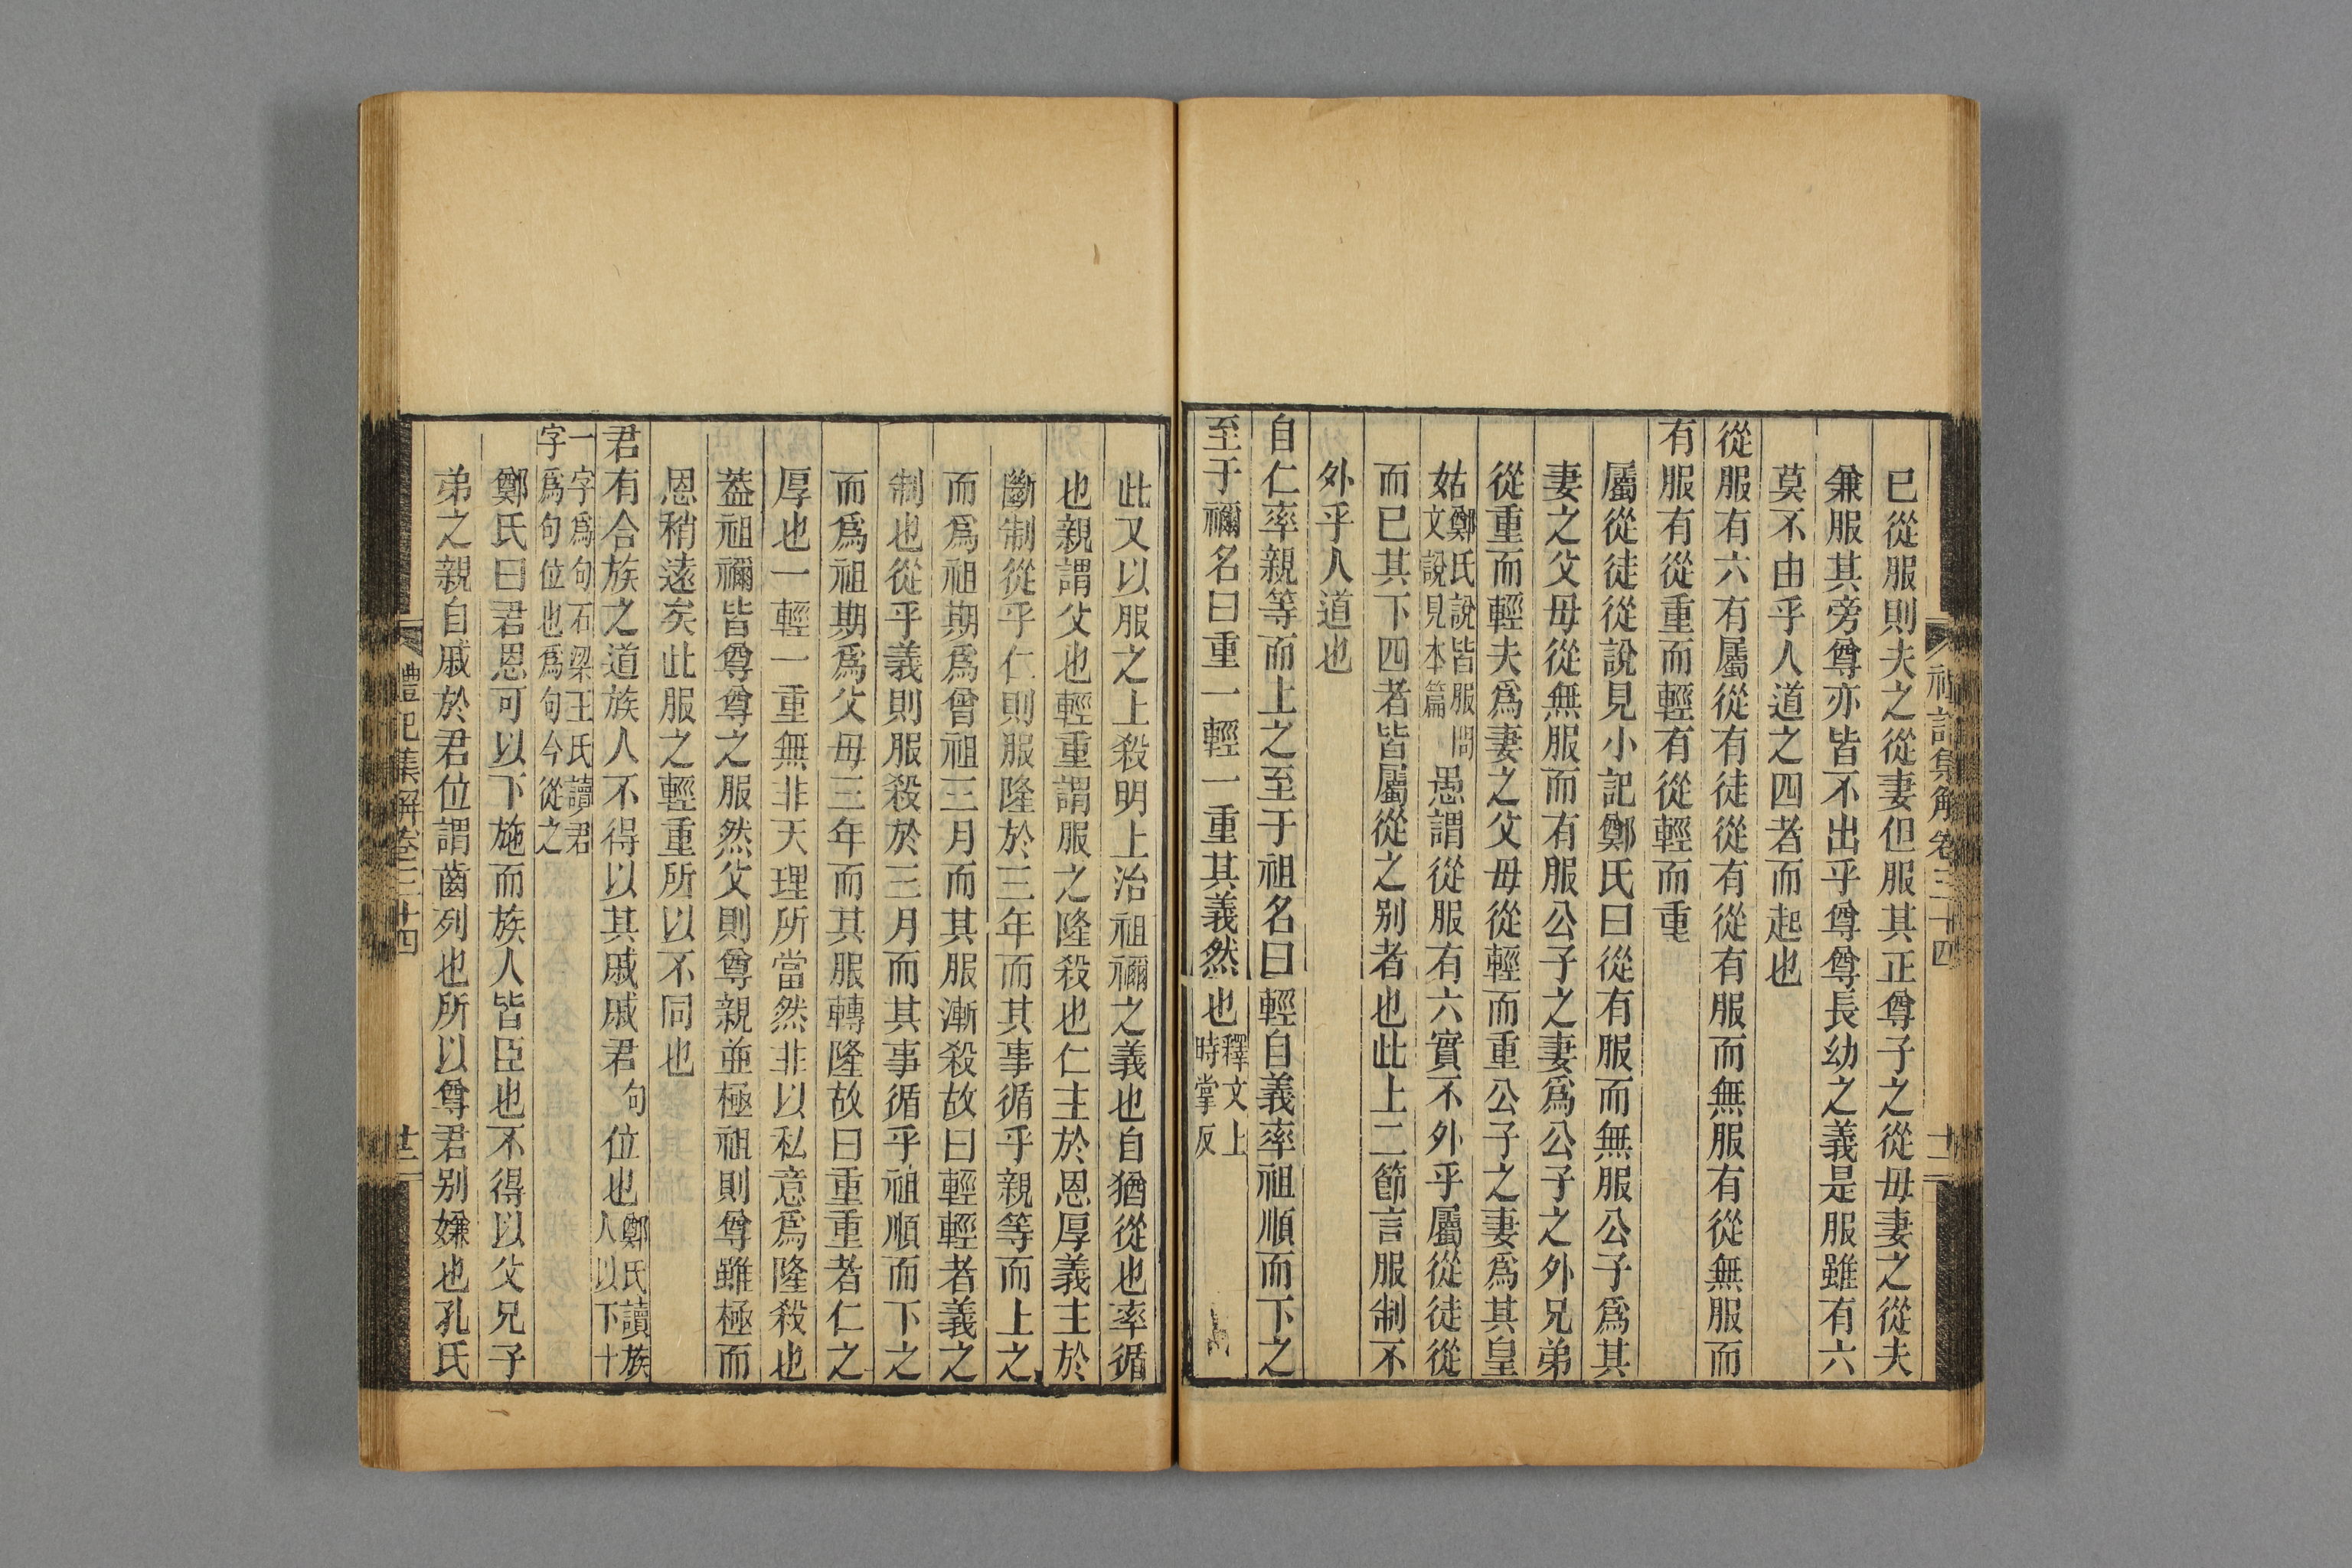 巳從服則夫之從妻但服其正尊子之從毋妻之從夫
兼服其旁尊亦皆不出乎尊尊長幼之義是服雖有六
莫不由乎人道之四者而起也
從服有六有屬從有徒從有從有服而無服有從無服而
有服有從重而輕有從輕而重
屬從徒從說見小記鄭氏曰從有服而無服公子爲其
妻之父毋從無服而有服公子之妻爲公子之外兄弟
從重而輕夫爲妻之父毋從輕而重公子之妻爲其皇
姑鄭氏說皆服問文說見本篇愚謂從服有六實不外乎屬從徒從
而巳其下四者皆屬從之别者也此上二節言服制不
外乎人道也
自仁率親等而上之至于祖名曰輕自義率祖順而下之
至于禰名曰重一輕一重其義然也釋文上時掌反
禮記集解卷三十四
此又以服之上殺明上治祖禰之義也自猶從也率循
也親謂父也輕重謂服之隆殺也仁主於恩厚義主於
斷制從乎仁則服隆於三年而其事循乎親等而上之
而爲祖期爲曾祖三月而其服漸殺故曰輕輕者義之
制也從乎義則服殺於三月而其事循乎祖順而下之
而爲祖期爲父毋三年而其服轉隆故曰重重者仁之
厚也一輕一重無非天理所當然非以私意爲隆殺也
葢祖禰皆尊尊之服然父則尊親並極祖則尊雖極而
恩稍遠矣此服之輕重所以不同也
君有合族之道族人不得以其戚戚君句位也鄭氏讀族人以下十
一字爲句石梁王氏讀君字爲句位也爲句今從之
鄭氏曰君恩可以下施而族人皆臣也不得以父兄子
弟之親自戚於君位謂齒列也所以尊君别嫌也孔氏
禮記集解卷三十四